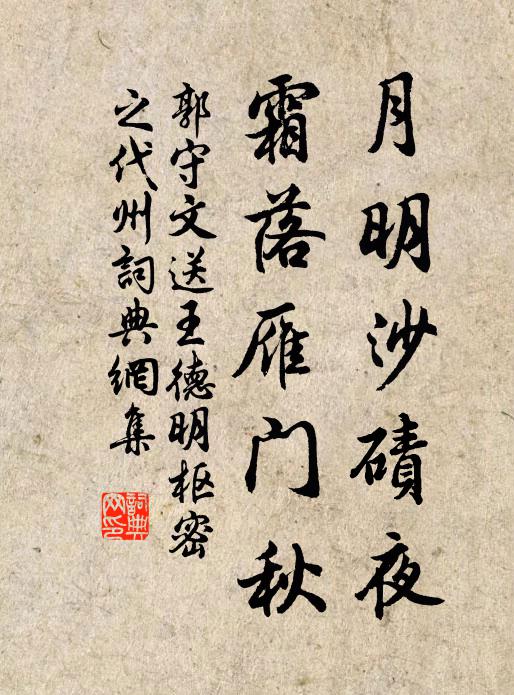 月明沙磧夜
霜落雁门秋
郭守文送王德明枢密
之代州詞典網集
詞典
网印